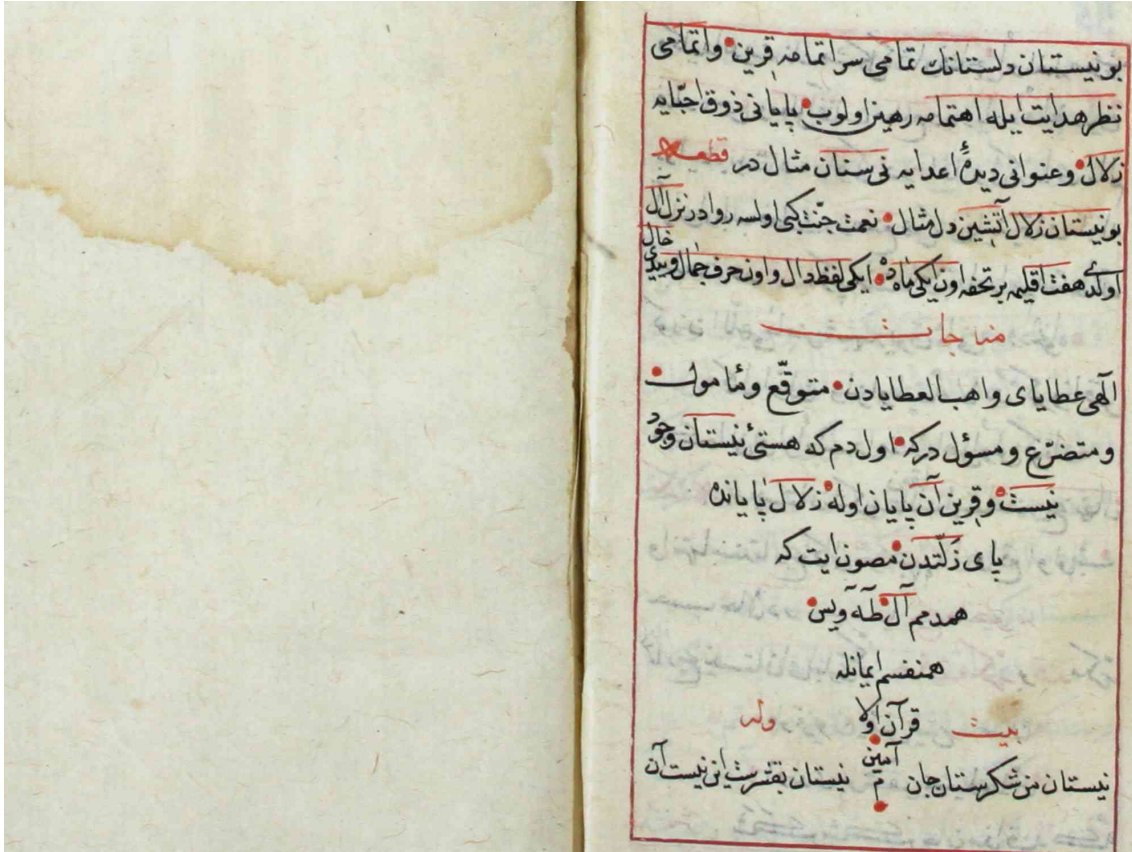 بو نیستان دلستانك تمامی سر اتمامه قرین و اتمامی
نظر هدایت ایله اهتمامه رهین اولوب پایانی ذوق احبّایه
زلال و عنوانی دیدۀ اعدایه نی سنان مثال در قطعه
بو نیستان زلال آتشین دل مثال نعمت جنّت كبی اولسه روا در نزل آل
اولدی هفت اقلیمه بر تحفه اون ایكی ماه ده ایكی لفظ دال و اون حرف جمال و یبدی خال
مناجات
الهی عطایای واهب العطایادن متوقّع و مأمول
و متضرّع و مسؤل دركه اول دم كه هستئ نیستان وجود
نیست و قرین آن پایان اوله زلال پایانده
پای زلّتدن مصون ایت كه
همدمم آل طه و یس
همنفسم ایمانله
قرآن اولا
بیت وله
آمین
نیستان من شكرستان جان م نیستان نیست آن